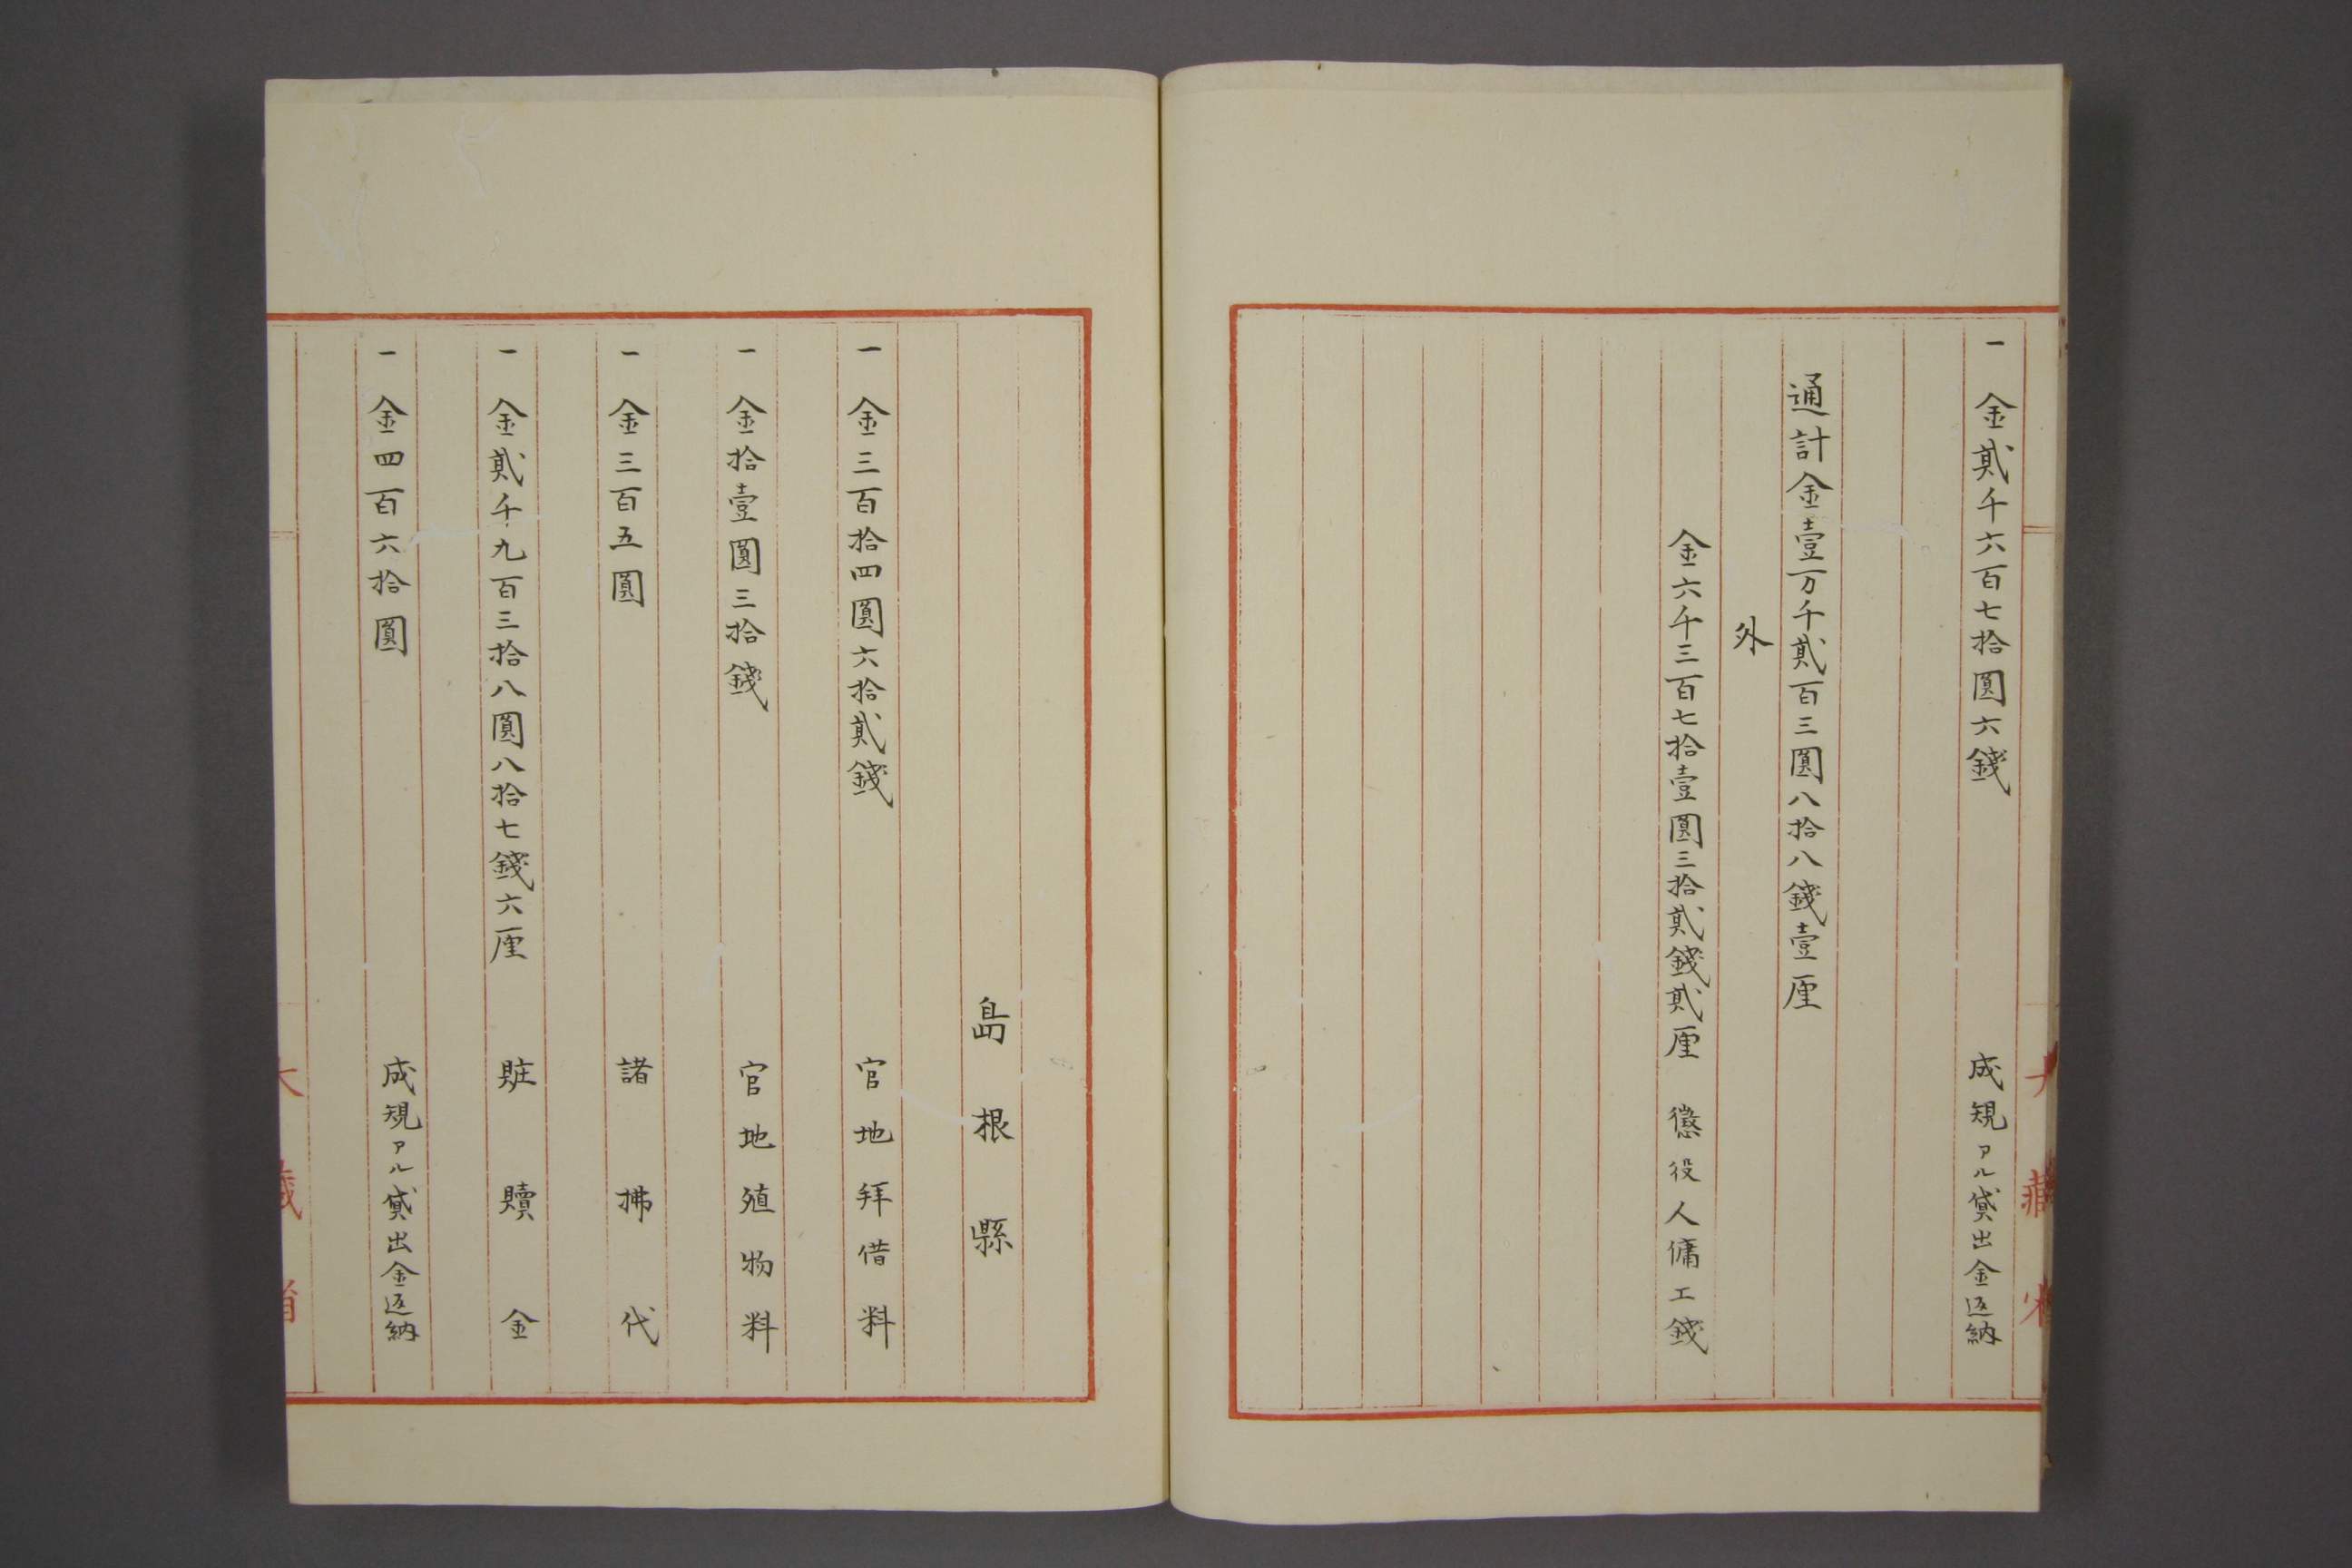 一 金貳千六百七拾圓六錢 成規アル貸出金返納
通計金壹万千貳百三圓八拾八錢壹厘
外
金六千三百七拾壹圓三拾貳錢貳厘 懲役人傭工錢
島根縣
一 金三百拾四圓六拾貳錢 官地拜借料
一 金拾壹圓三拾錢 官地殖物料
一 金三百五圓 諸拂代
一 金貳千九百三拾八圓八拾七錢六厘 賍贖金
一 金四百六拾圓 成規アル貸出金返納